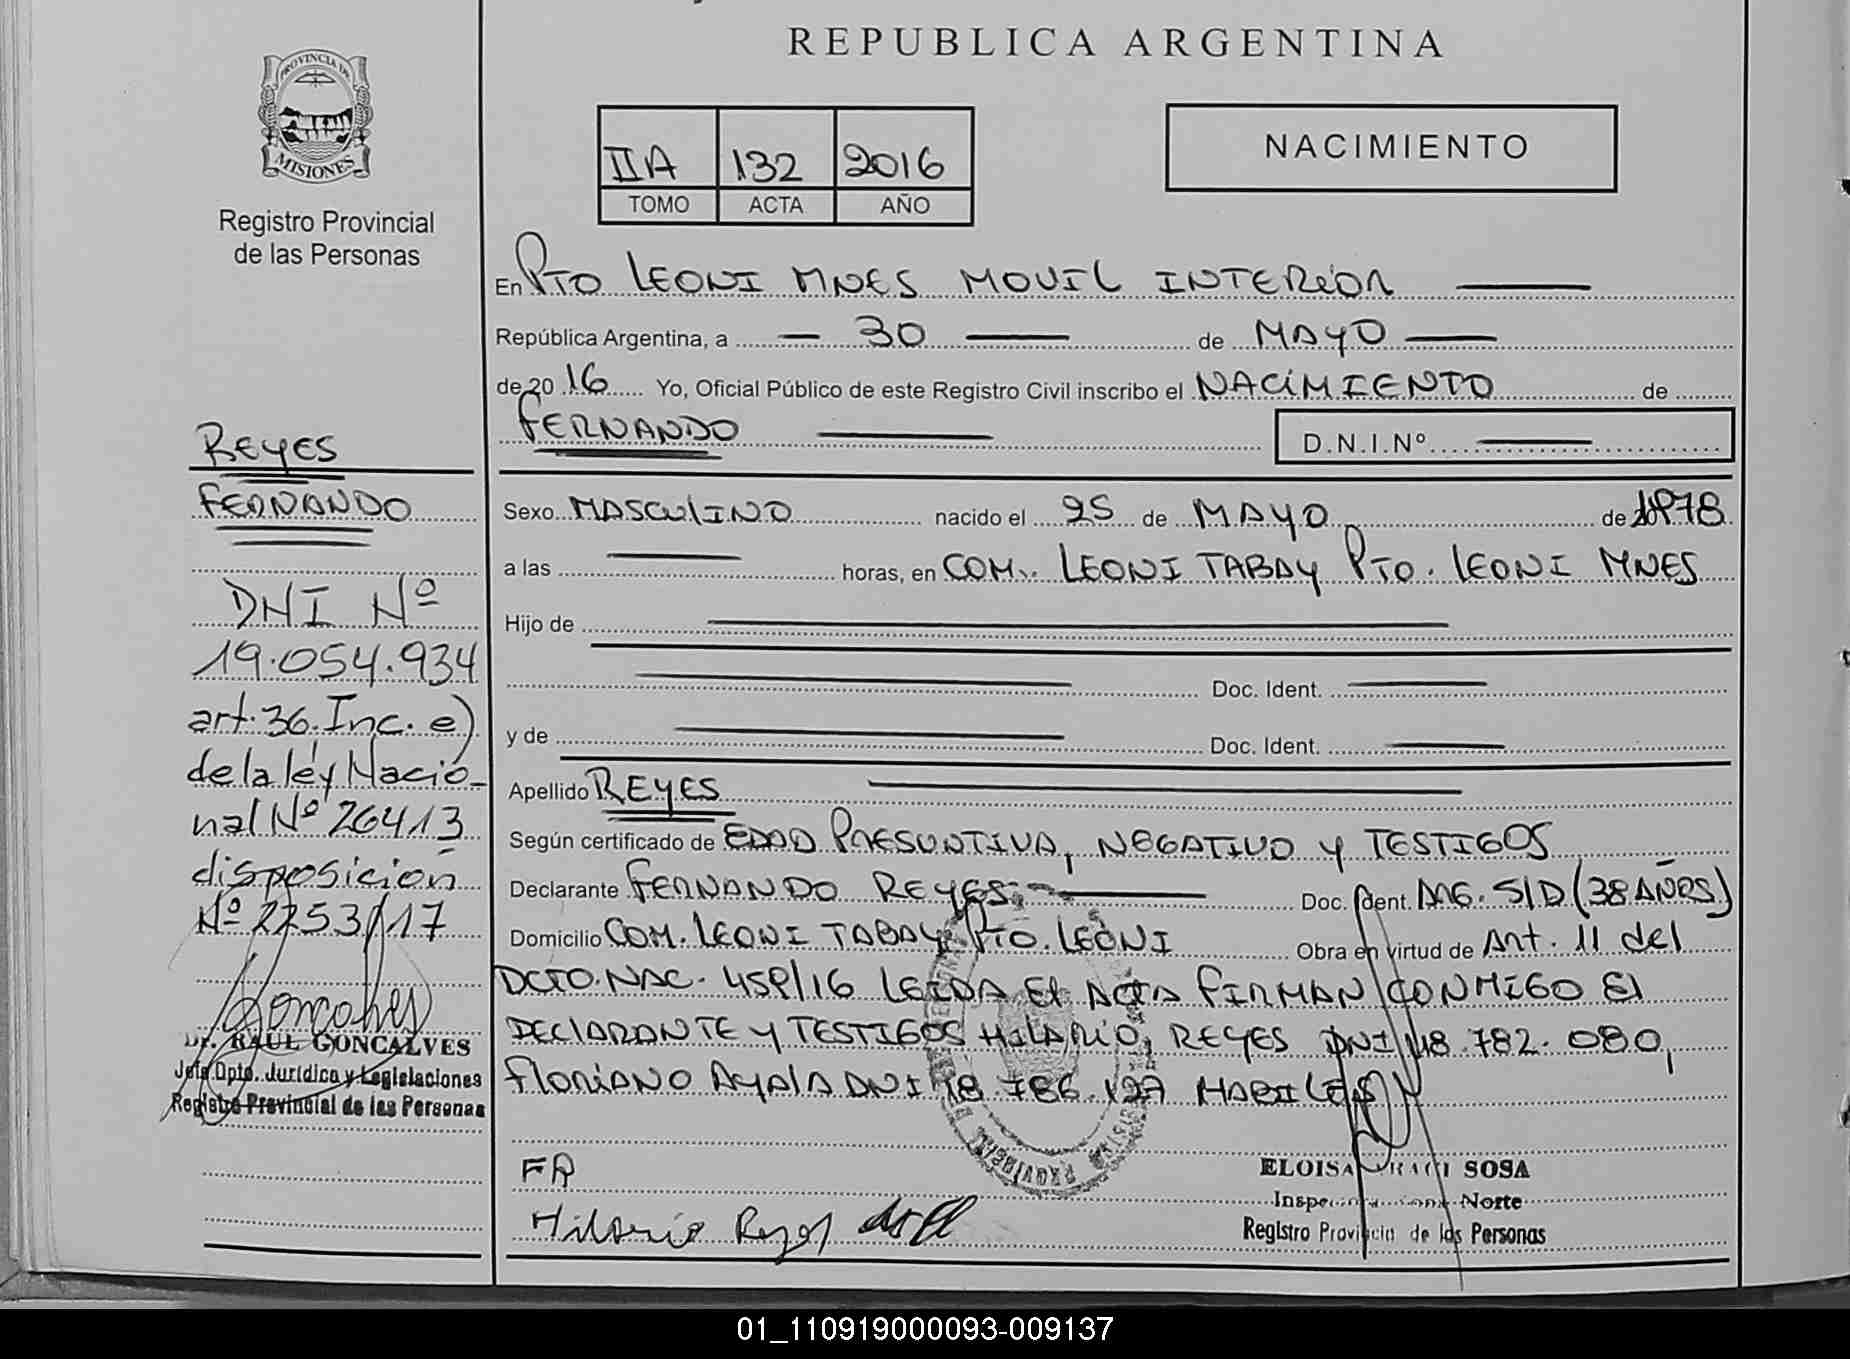 REPUBLICA ARGENTINA
PROVINCIA DE
MISIONES
Registro Provincial
de las Personas
IIA 132 2016
TOMO ACTA AÑO
NACIMIENTO
En PTO LEONI MNES MOVIL INTERIOR
República Argentina, a 30 de MAYO
de 20 16 Yo, Oficial Público de este Registro Civil inscribo el NACIMIENTO de
FERNANDO D.N.I.Nº
REYES
FERNANDO
DNI Nº
19.054.934
art. 36. Inc. e)
de la ley Nacio-
nal Nº 26413
disposición
Nº 2253/17
Goncalves
Dr. RAUL GONCALVES
Jefe Dpto. Jurídica y Legislaciones
Registro Provincial de las Personas
Sexo MASCULINO nacido el 25 de MAYO de 1978
a las horas, en COM. LEONI TABAY PTO. LEONI MNES
Hijo de
Doc. Ident.
y de Doc. Ident.
Apellido REYES
Según certificado de EDAD PRESUNTIVA, NEGATIVO y TESTIGOS
Declarante FERNANDO REYES Doc. Ident. ARG. S/D (38 AÑOS)
Domicilio COM. LEONI TABAY PTO. LEONI Obra en virtud de ART. 11 del
DCTO. NAC. 459/16 LEIDA El ACTA FIRMAN CONMIGO El
DEClARANTE y TESTIGOS HILARIO REYES DNI 18.782.080,
FlORIANO AyAlA DNI 18.786.127 HABILES
PROVINCIAL
FR
Hilario Reyes
ELOISA SOSA
Norte
Registro Provincial de las Personas
01_110919000093-009137